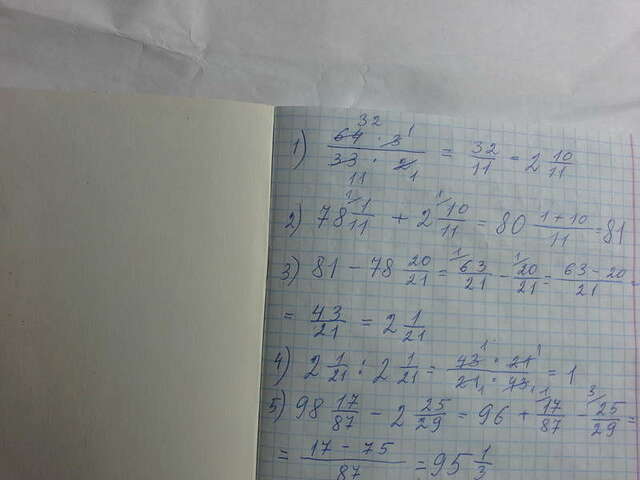 1) (64 · 3)/(33 · 2) = 32/11 = 2 10/11
2) 78 1/11 + 2 10/11 = 80 (1+10)/11 = 81
3) 81 - 78 20/21 = 63/21 - 20/21 = (63-20)/21 =
= 43/21 = 2 1/21
4) 2 1/21 : 2 1/21 = (43 · 21)/(21 · 43) = 1
5) 98 17/87 - 2 25/29 = 96 + 17/87 - 25/29 =
= (17 - 75)/87 = 95 1/3